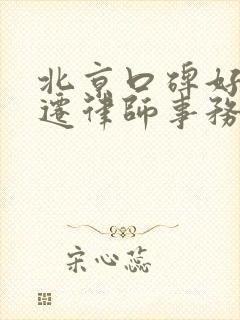 北京口碑好
迁律师事务
宋心蕊